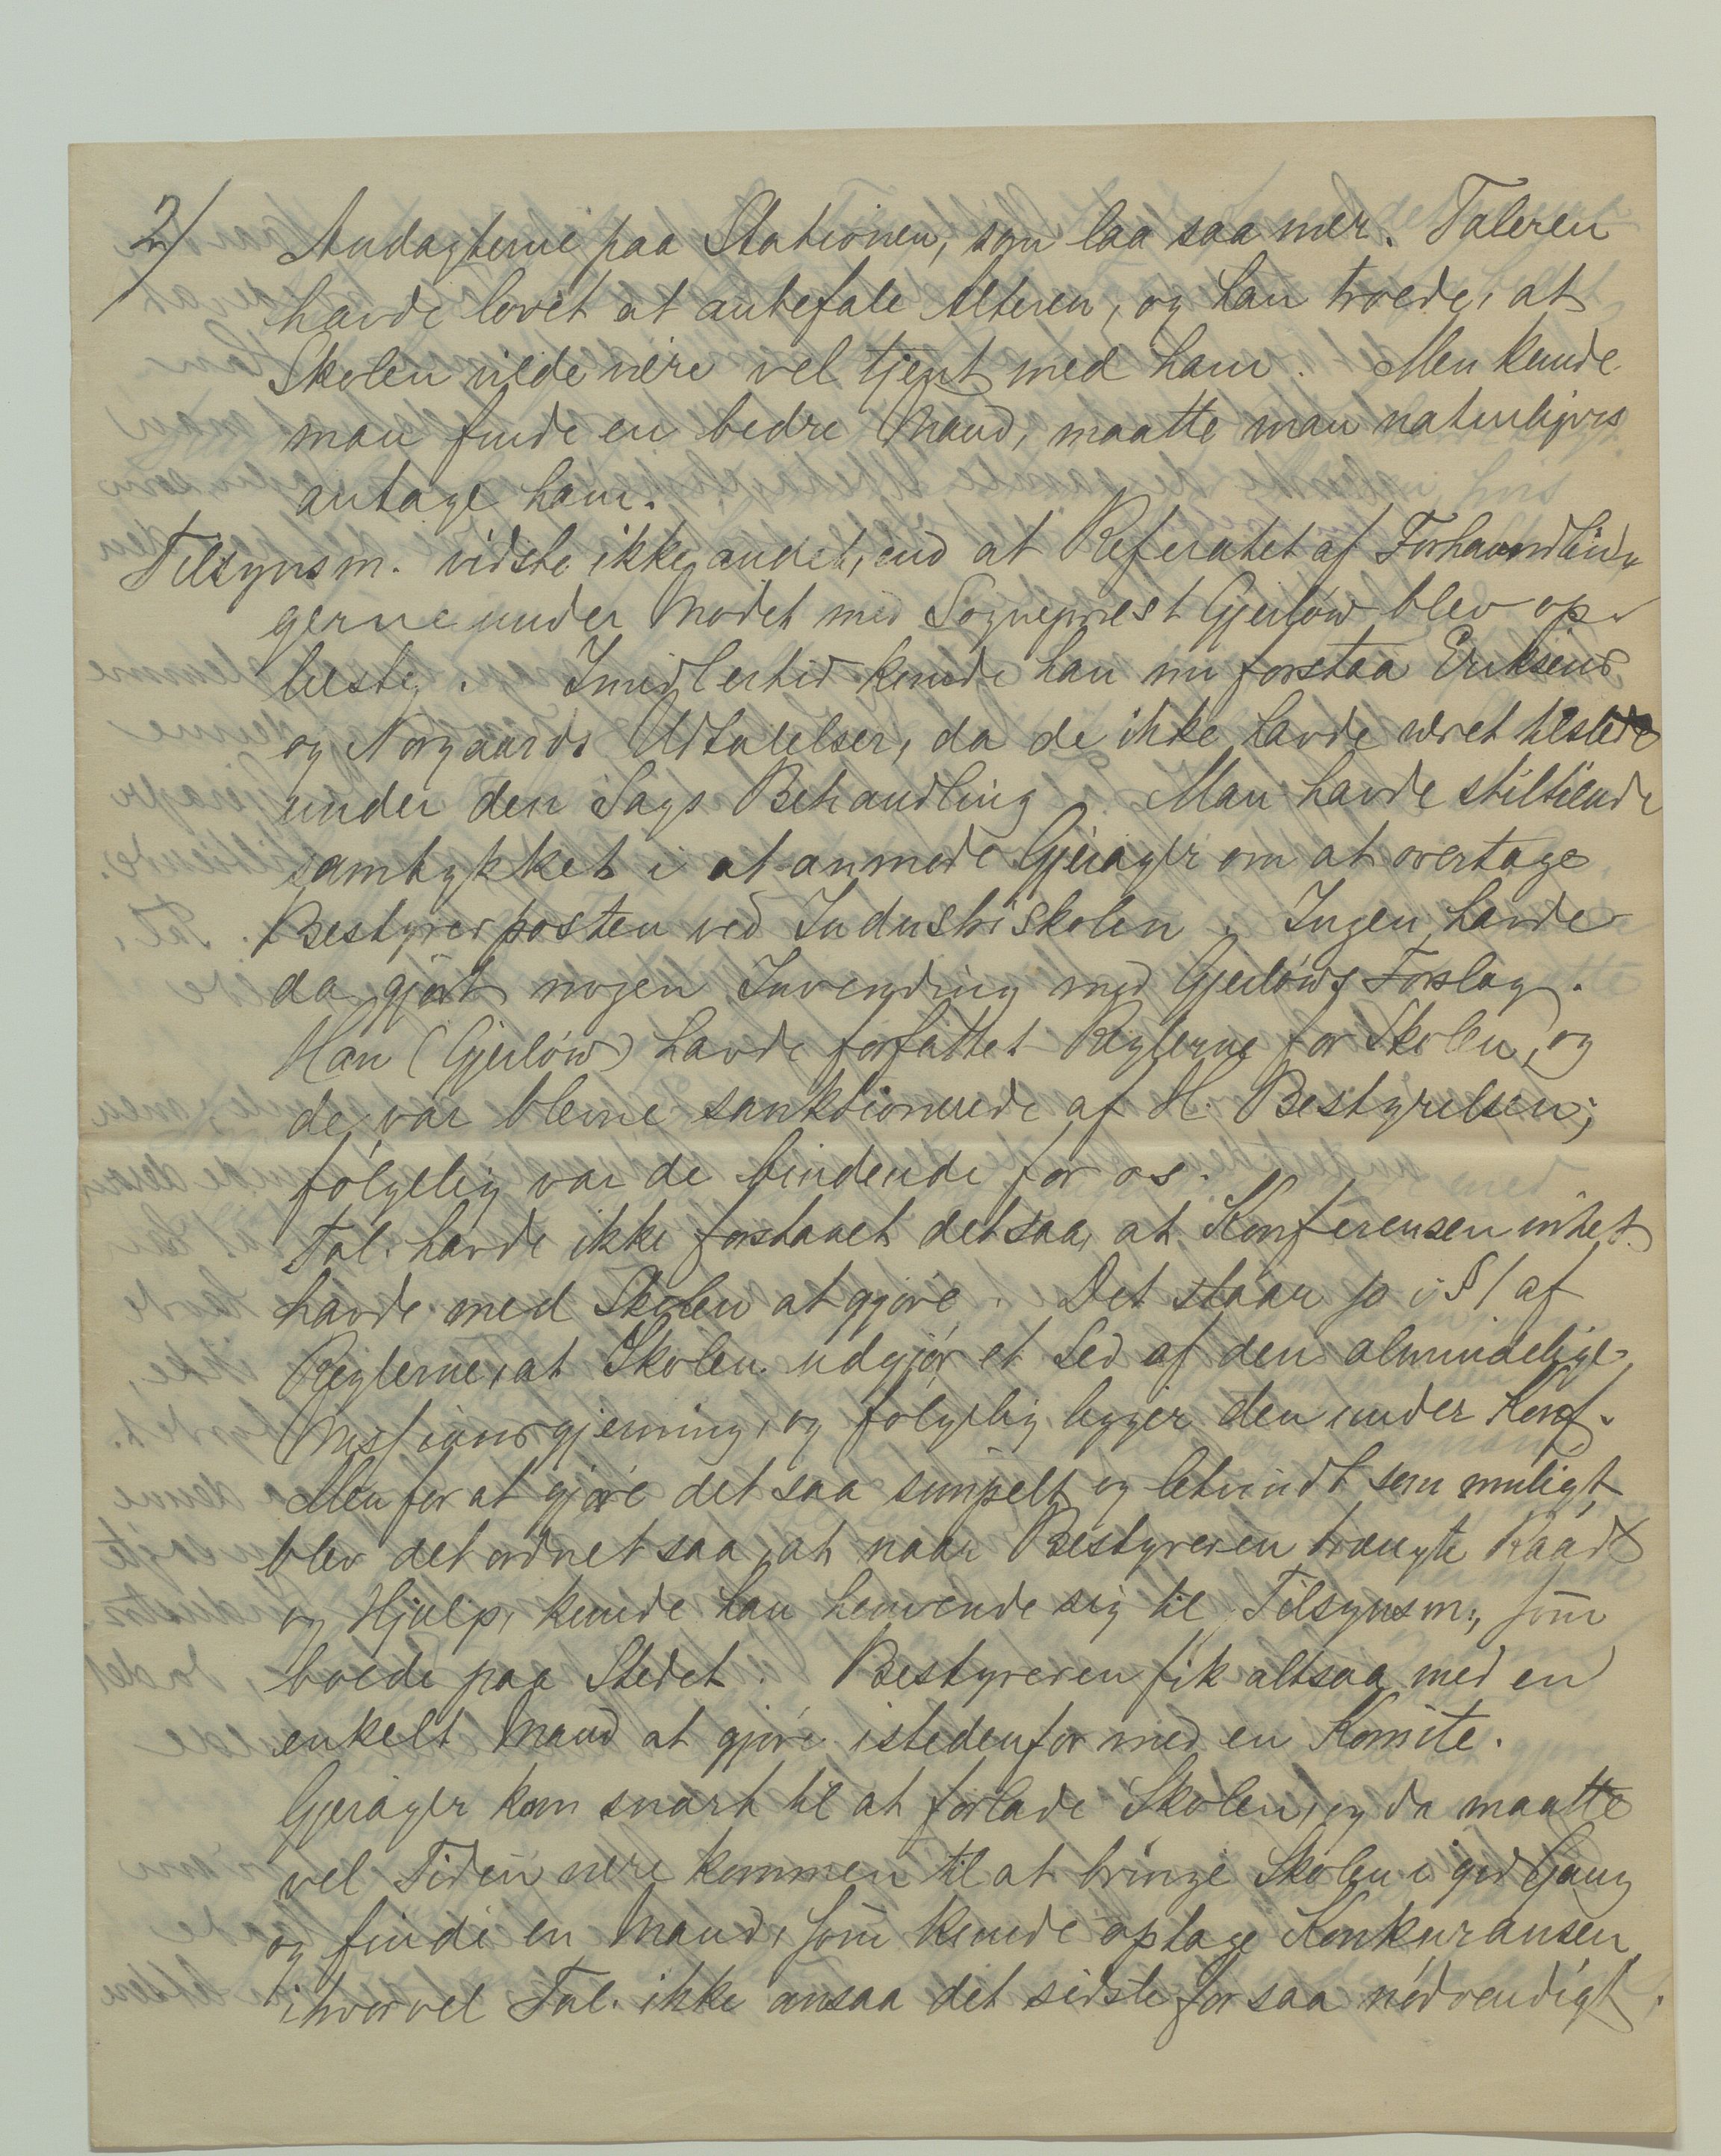 2/ Andagterne paa Stationen, som laa saa nær. Taleren
havde lovet at anbefale Alteren, og han troede, at
Skolen vilde være vel tjent med ham. Men kunde
man finde en bedre Mand, maatte man naturligvis
antage ham.
Tilsynsm. vidste ikke andet, end at Referatet af Forhandlin-
gerne under Mødet med Sogneprest Gjerløw blev op-
læst. Imidlertid kunde han nu forstaa Eriksens
og Norgaards Udtalelser, da de ikke havde været tilstede
under den Sags Behandling. Man havde stiltiende
samtykket i at anmode Gjerager om at overtage
Bestyrerposten ved Industriskolen. Ingen havde
da gjort nogen Invending med Gjerløws Forslag.
Han (Gjerløw) havde forfattet Reglerne for Skolen, og
de var blevne sanktionerede af H. Bestyrelsen;
følgelig var de bindende for os.
Tal. havde ikke forstaaet det saa, at Konferensen intet
havde med Skolen at gjøre. Det staar jo i § 1 af
Reglerne, at Skolen udgjør et Led af den almindelige
Missionsgjerning, og følgelig ligger den under Konf.
Men for at gjøre det saa simpelt og letvindt som muligt
blev det ordnet saa, at naar Bestyreren trængte Raad
og Hjælp, kunde han henvende sig til Tilsynsm., som
boede paa Stedet. Bestyreren fik altsaa med en
enkelt Mand at gjøre istedenfor med en Komite.
Gjerager kom snart til at forlade Skolen, og da maatte
vel Tiden være kommen til at bringe Skolen i god Gang
og finde en Mand, som kunde optage Konkuransen,
ihvorvel Tal. ikke ansaa det sidste for saa nødvendigt.